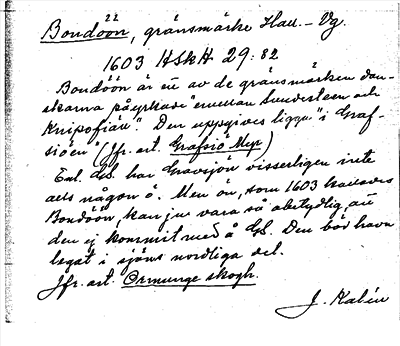 Bondöön, gränsmärke Hall. - Vg.
1603 HSkH 29:82
Bondöön är en av de gränsmärken dan-
skarna påyrkade "emellan Sundesteen och
Knipofiäll". Den uppgives ligga "i Graf-
siöen" (jfr. art. Grafsiö Myr)
Enl. GS. har Gravsjön visserligen inte
alls någon ö. Men ön, som 1603 kallades
Bondöön, kan ju vara så obetydlig, att
den ej kommit med å GS. Den bör hava
legat i sjöns nordliga del.
Jfr. art. Ormunge skogh.
J. Kalén